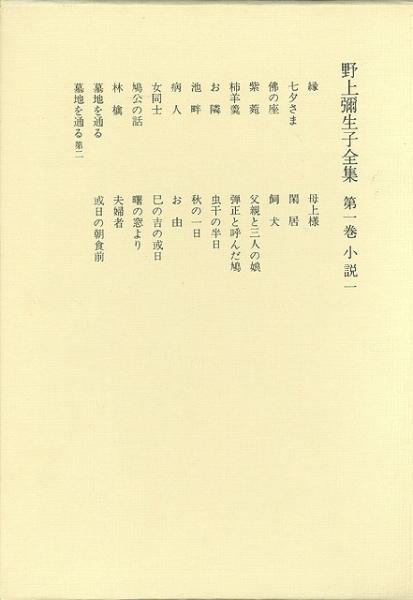 野上彌生子全集 第一巻 小説一
縁
七夕さま
佛の座
紫苑
柿羊羹
お隣
池畔
病人
女同士
鳩公の話
林檎
墓地を通る
墓地を通る 第二
母上様
閑居
飼犬
父親と三人の娘
弾正と呼んだ鳩
虫干の半日
秋の一日
お由
巳の吉の或日
曙の窓より
夫婦者
或日の朝食前